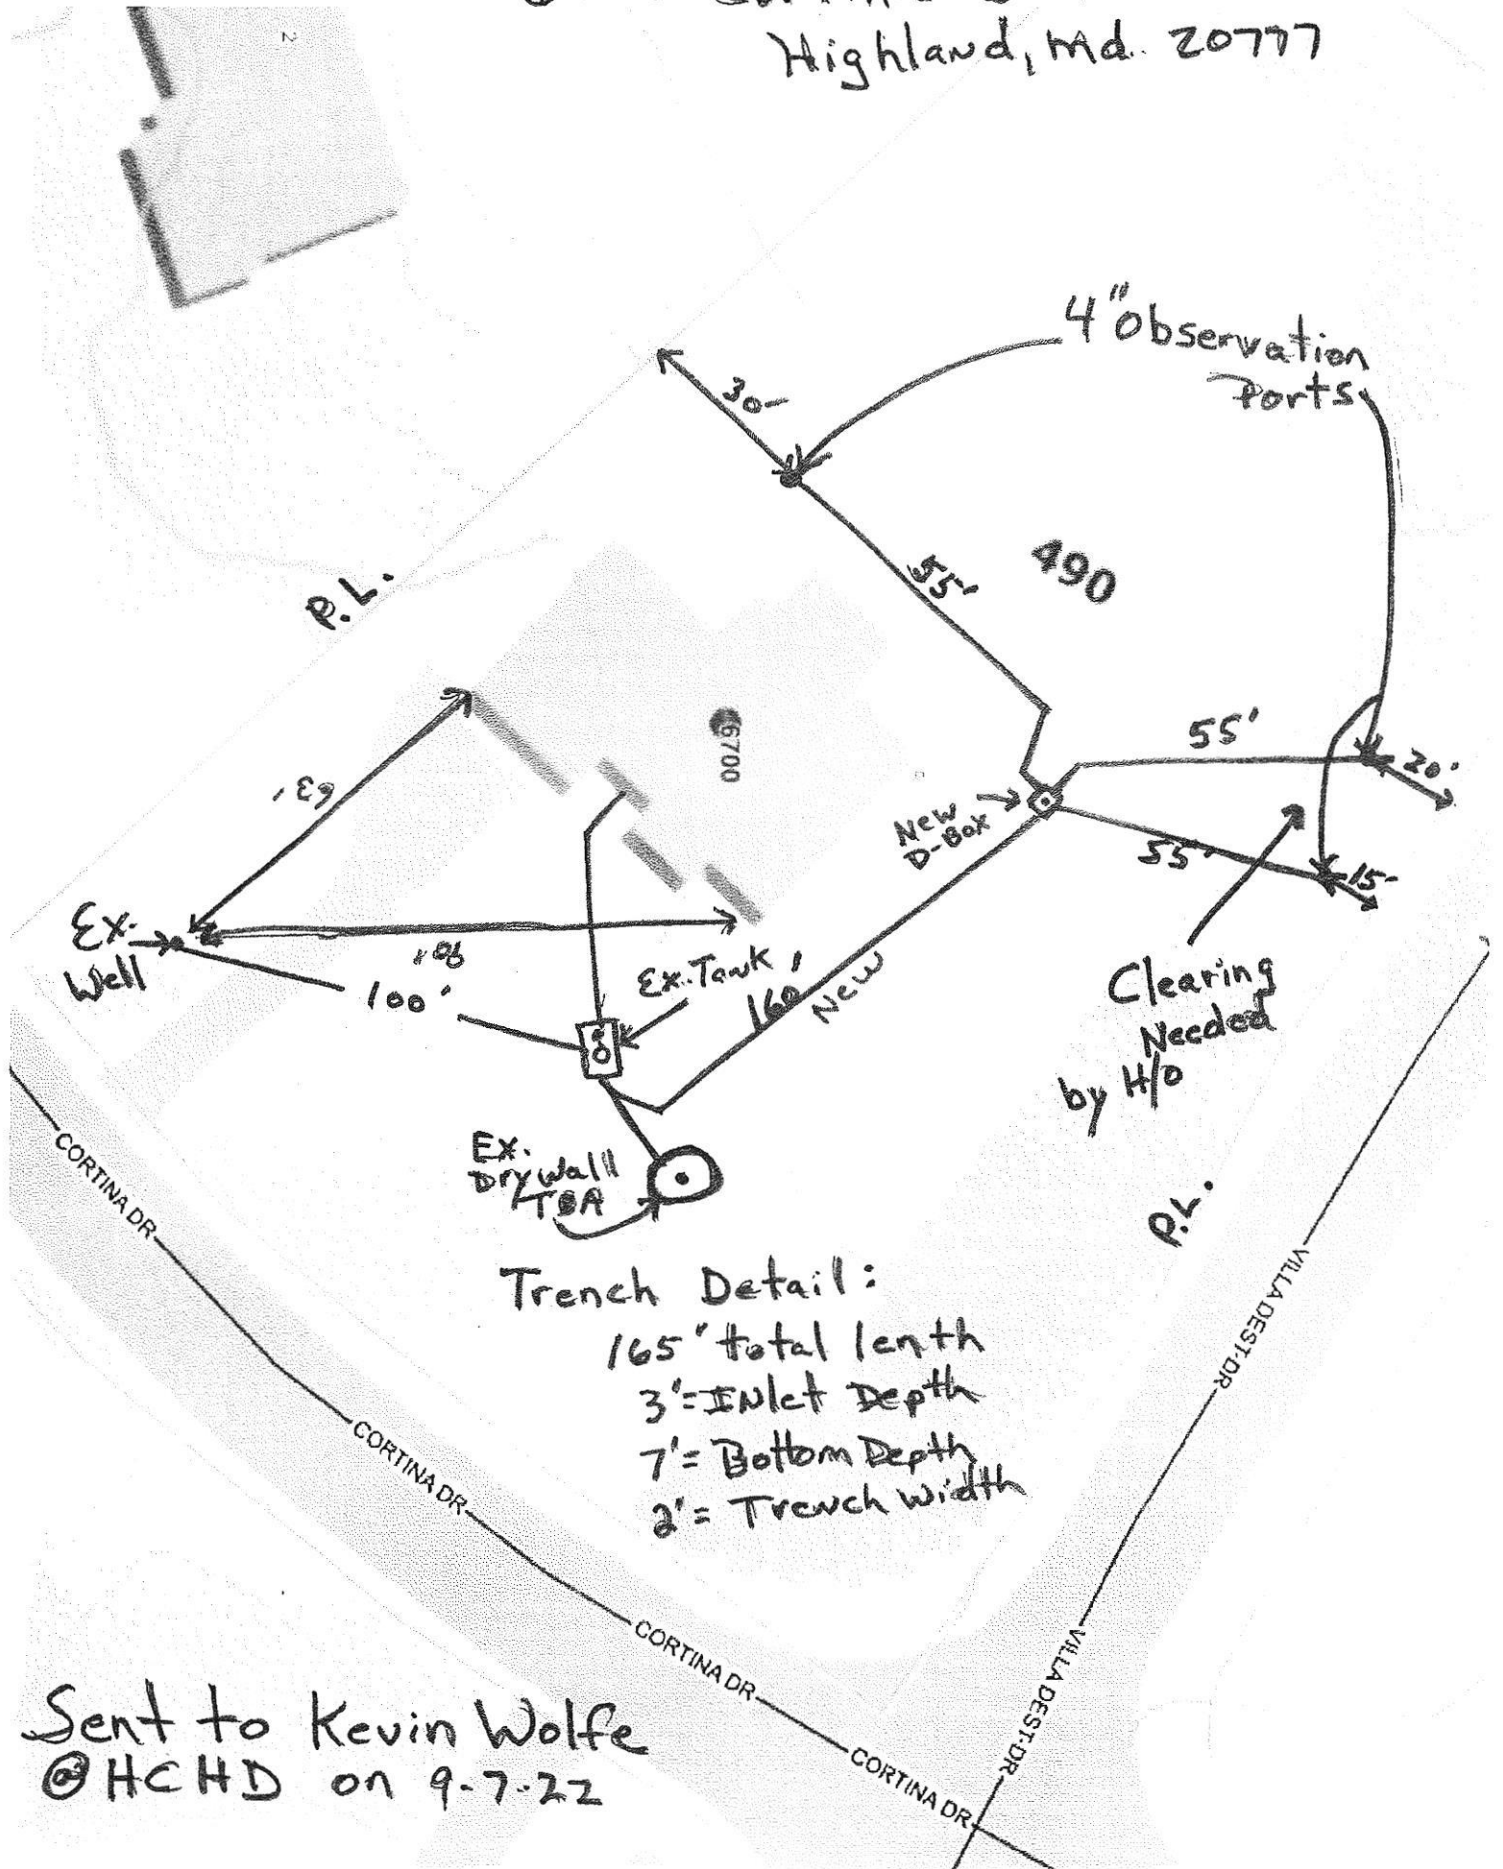 Highland, Md. 20777
2
4" Observation
Ports
30'
55'
490
P.L.
6700
55'
20'
New
D-Box
55'
15'
63'
Ex.
Well
100'
Ex. Tank
160'
New
Clearing
Needed
by H/O
Ex.
Drywall
TBA
P.L.
Trench Detail:
165' total lenth
3'= INlet Depth
7'= Bottom Depth
2'= Trench Width
CORTINA DR
CORTINA DR
CORTINA DR
CORTINA DR
VILLA DEST-DR
VILLA DEST-DR
Sent to Kevin Wolfe
@HCHD on 9-7-22